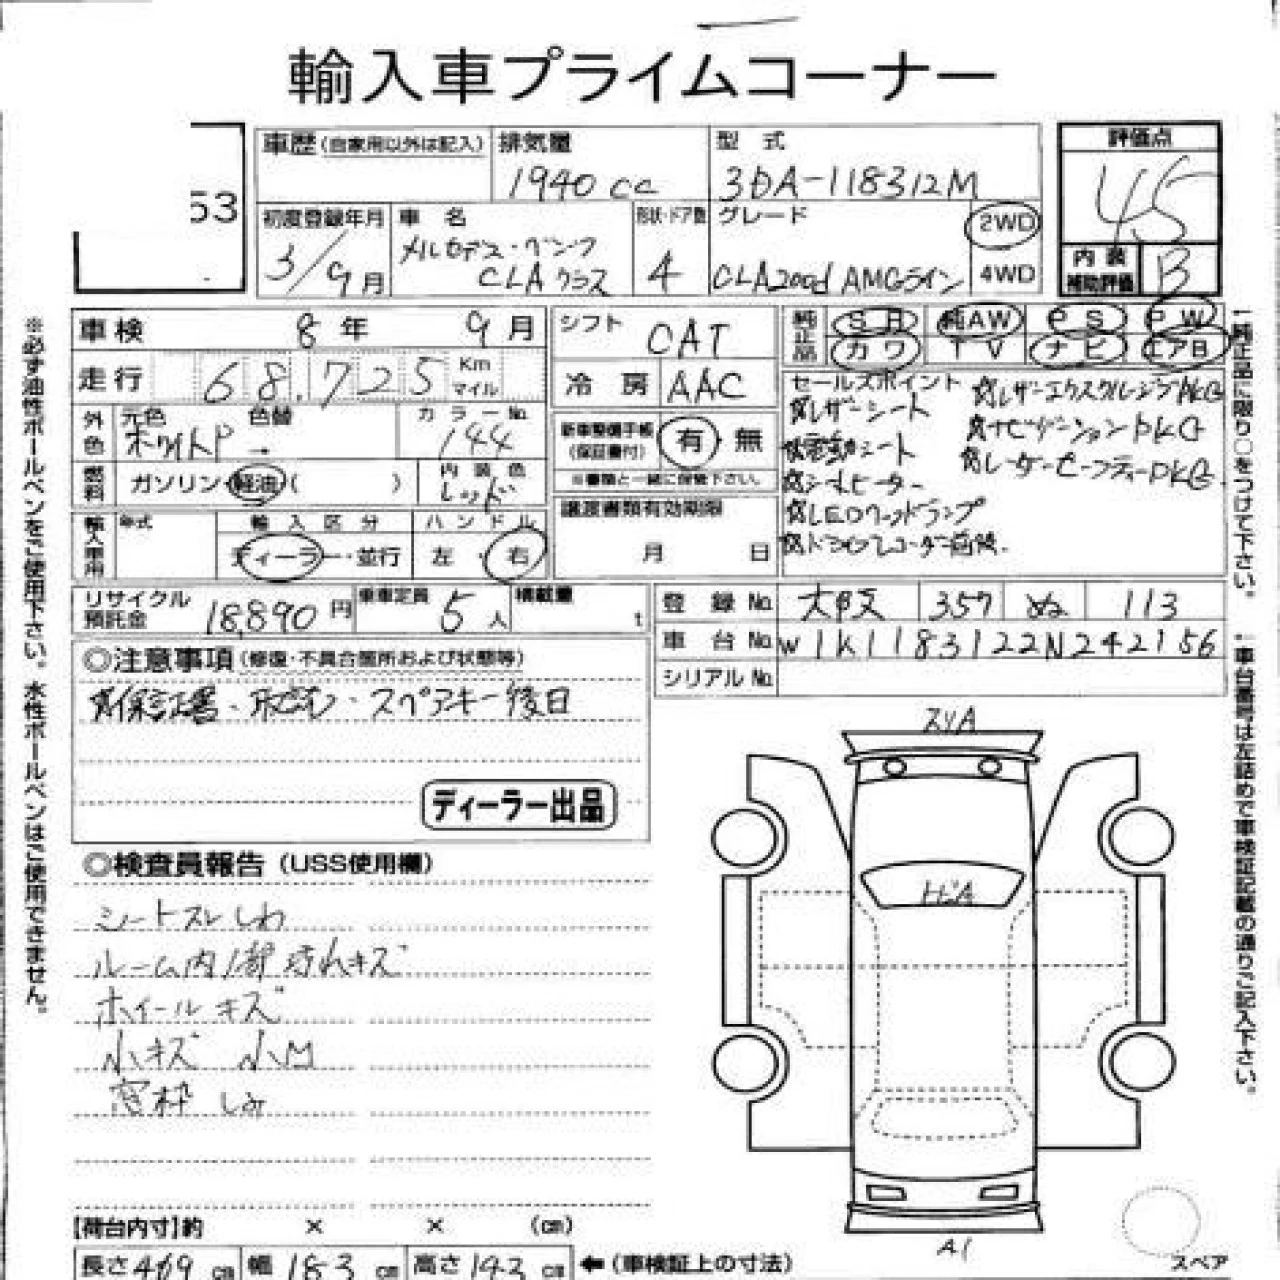 輸入車プライムコーナー
53
車歴 (自家用以外は記入)
排気量
1940 cc
型式
3DA-118312M
評価点
45
内装
補助評価
B
初度登録年月
3/9月
車名
メルセデス・ベンツ
CLAクラス
形状・ドア数
4
グレード
CLA200d AMGライン
2WD
4WD
車検 8年 9月
走行 68,725 Km
マイル
外色
元色 色替
ホワイト →
カラーNo.
144
燃料
ガソリン・軽油( )
内装色
レッド
輸入車用
年式
輸入区分
ディーラー・並行
ハンドル
左・右
シフト CAT
冷房 AAC
新車整備手帳
(保証書付)
有・無
※書類と一緒に保管下さい。
譲渡書類有効期限
月 日
純正品
SR 純AW PS PW
カワ TV ナビ エアB
セールスポイント
レザーエクスクルーシブPKG
レザーシート
ナビゲーションPKG
電動シート
レーダーセーフティーPKG
シートヒーター
LEDヘッドランプ
ドライブレコーダー前後
リサイクル
預託金
18,890円
乗車定員 5人
積載量 t
登録No. 大阪 357 ぬ 113
車台No. W1K1183122N242156
シリアルNo.
◎注意事項 (修復・不具合箇所および状態等)
保証書・取説・スペアキー後日
ディーラー出品
◎検査員報告 (USS使用欄)
シートスレしわ
ルーム内1部汚れキズ
ホイールキズ
小キズ 小M
窓枠 しみ
スリA
トビA
A1
スペア
[荷台内寸]約 × × (cm)
長さ469cm 幅183cm 高さ142cm ←(車検証上の寸法)
※必ず油性ボールペンをご使用下さい。水性ボールペンはご使用できません。
純正品に限り○をつけて下さい。
車台番号は左詰めで車検証記載の通りご記入下さい。